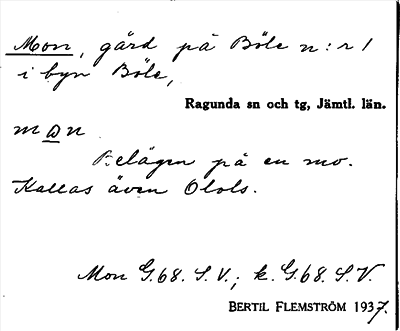 Mon, gård på Böle n:r 1
i byn Böle,
Ragunda sn och tg, Jämtl. län.
mωn
Belägen på en mo.
Kallas även Olols.
Mon G.68. S.V.; k. G.68. S.V.
BERTIL FLEMSTRÖM 1937.